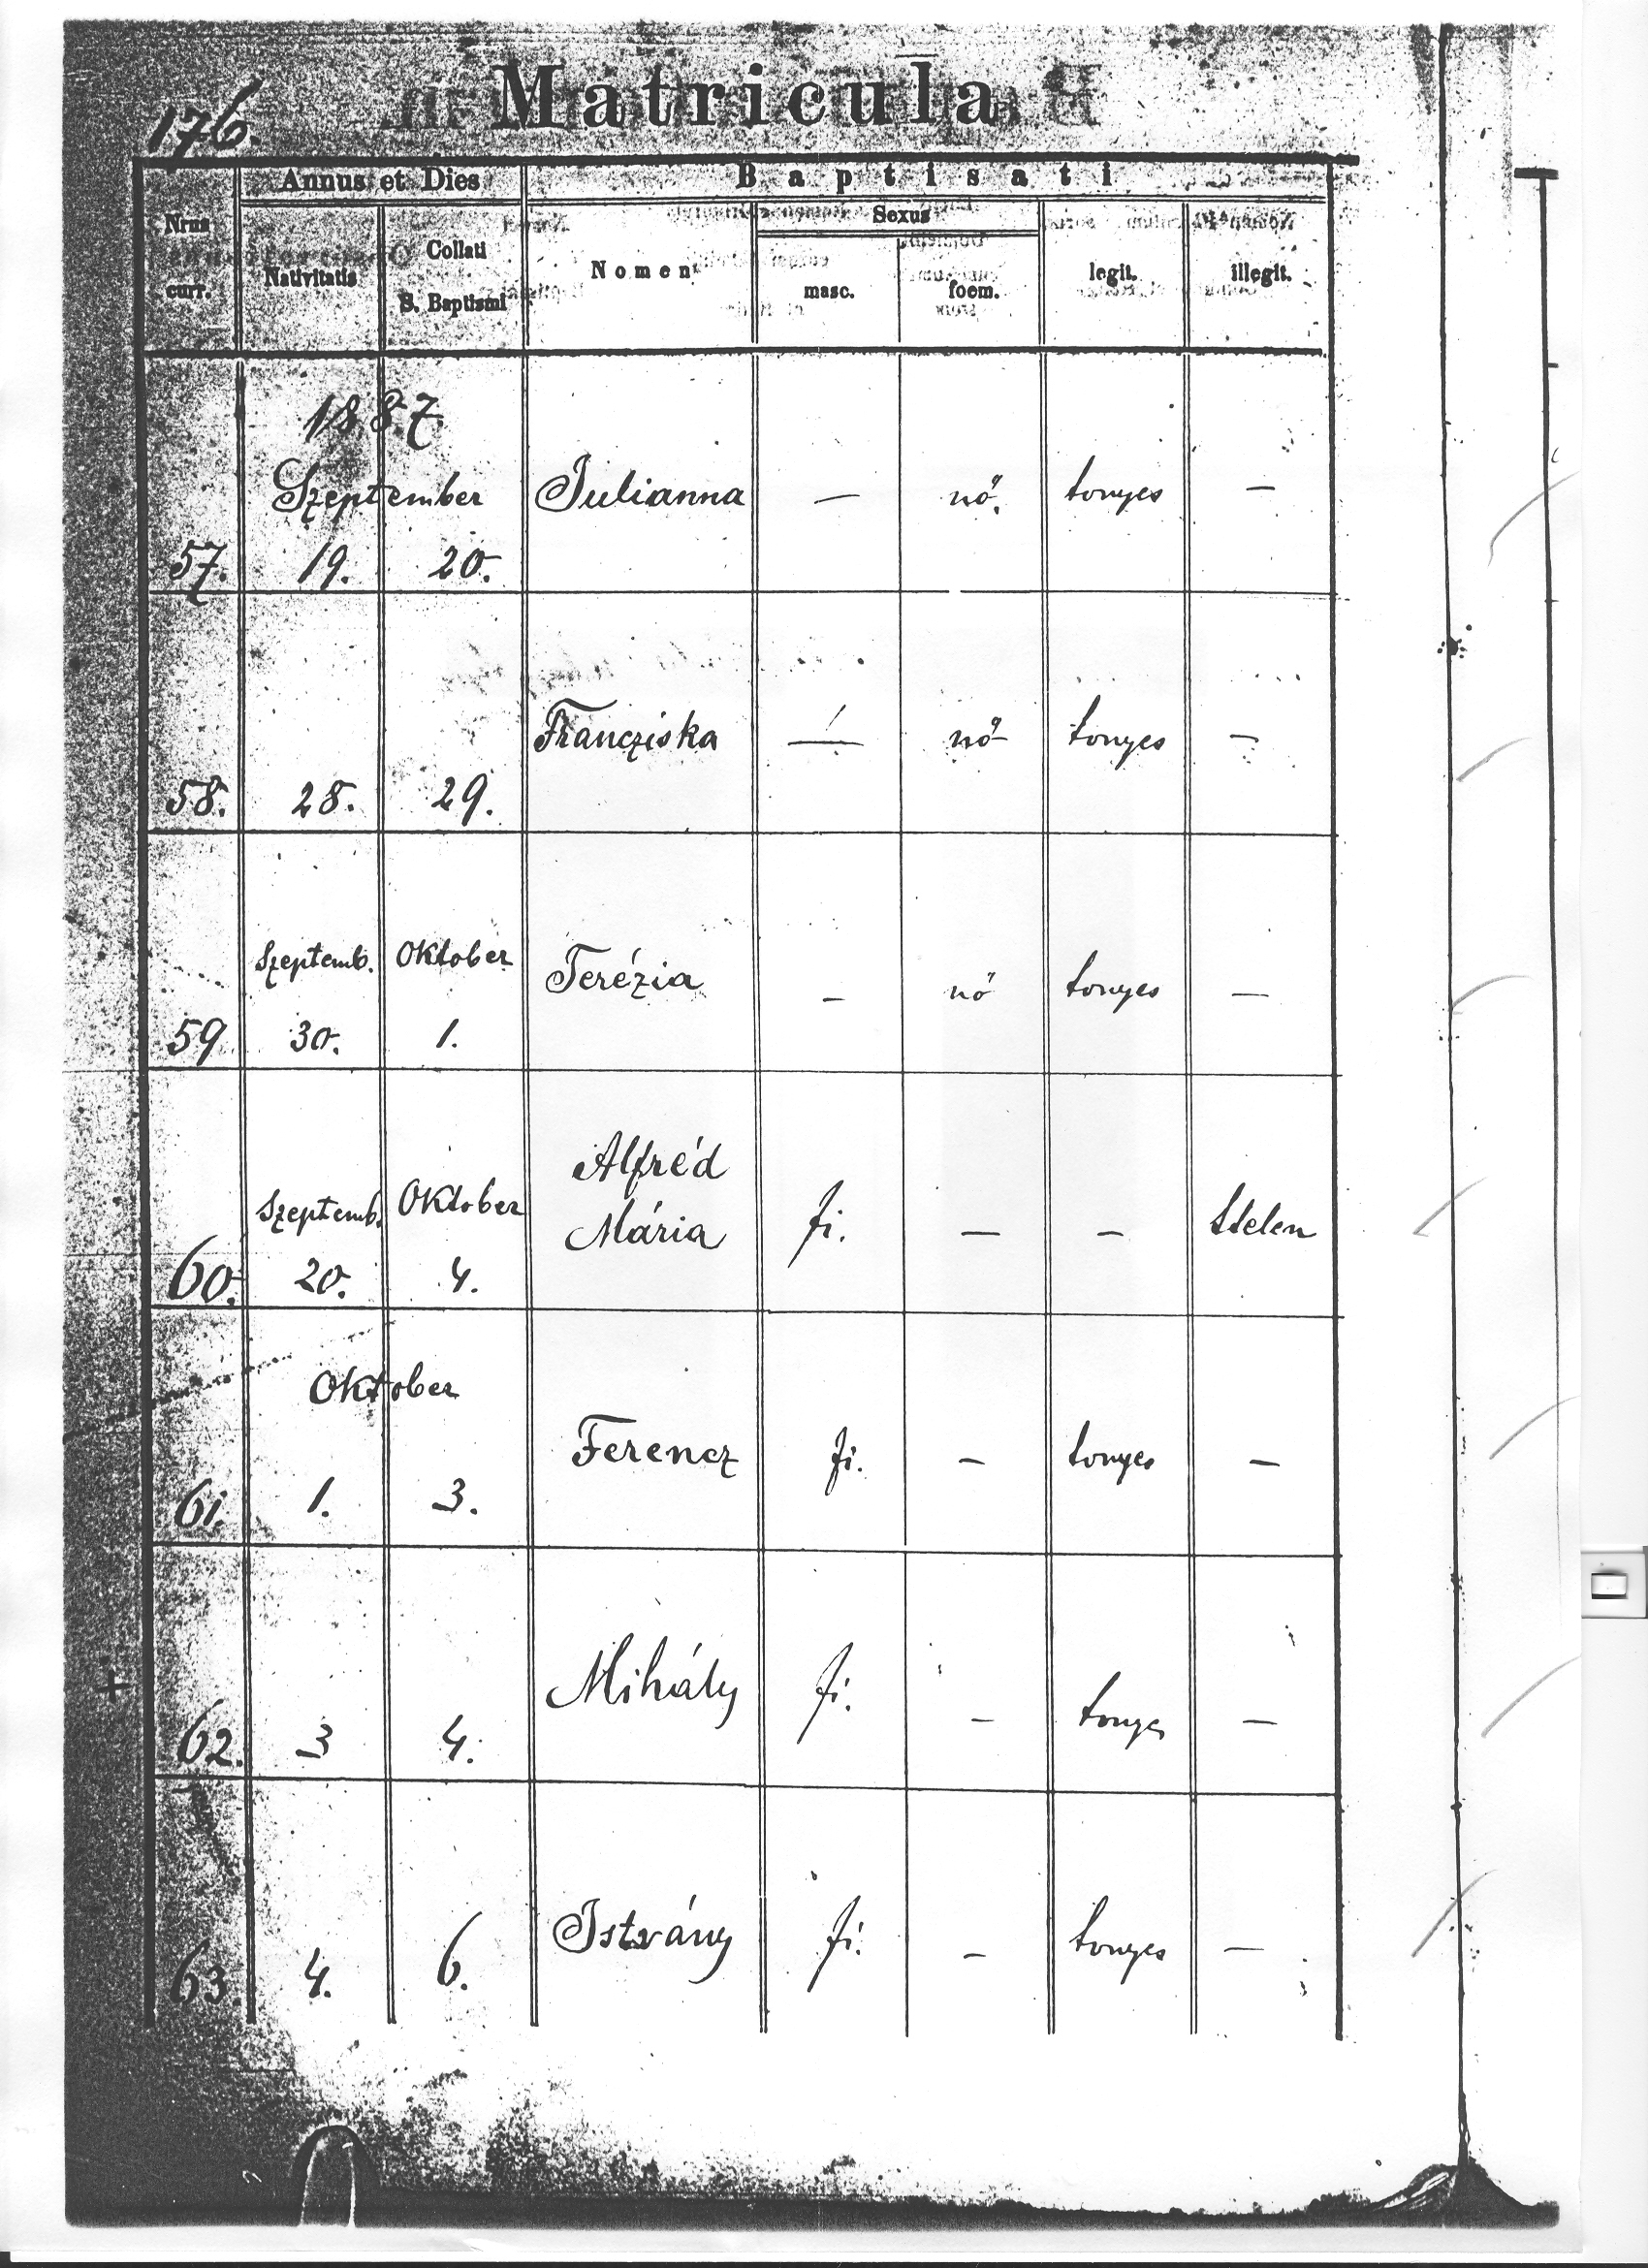 176.
Matricula
Annus et Dies
Baptisati
Nrus curr.
Nativitatis
Collati S. Baptismi
Nomen
Sexus
masc.
foem.
legit.
illegit.
1887.
Szeptember
57. 19. 20. Julianna — nő. tvnyes —
58. 28. 29. Francziska — nő tvnyes —
Szeptemb. Oktober
59 30. 1. Terézia — nő tvnyes —
Szeptemb. Oktober
60. 20. 4. Alfréd
Mária fi. — — ttelen
Oktober
61. 1. 3. Ferencz fi. — tvnyes —
62. 3 4. Mihály fi. — tvnyes —
63. 4. 6. István fi. — tvnyes —